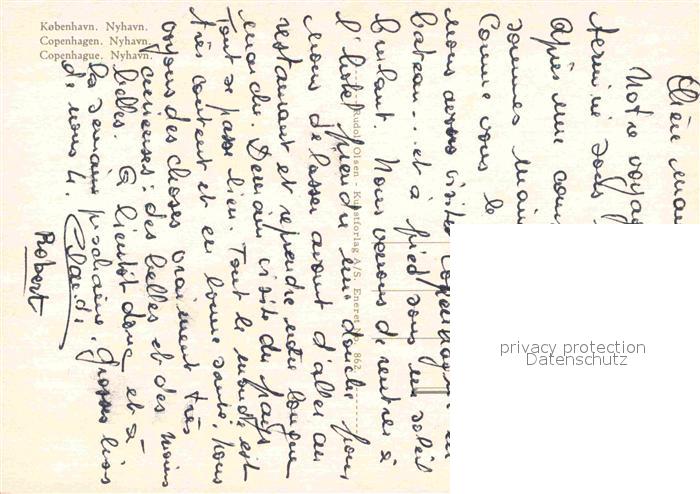 København. Nyhavn.
Copenhagen. Nyhavn.
Copenhague. Nyhavn.
Rudolf Olsen - Kunstforlag A/S. Eneret No. 862.
Chère mam
Notre voyag
termine
Après une
sommes main
Comme vous le
nous avons visité Copenhague en
bateau... et à pied sous un soleil
brûlant. Nous venons de rentrer à
l'hôtel prendre une douche pour
nous délasser avant d'aller au
restaurant et reprendre notre longue
marche. Demain visite du pays
Tout se passe bien. Tout le monde est
très content et en bonne santé; nous
voyons des choses vraiment très
curieuses: des belles et des moins
belles. A bientôt donc et à
la semaine prochaine. Grosses bises
de nous 4.
Robert
privacy protection
Datenschutz